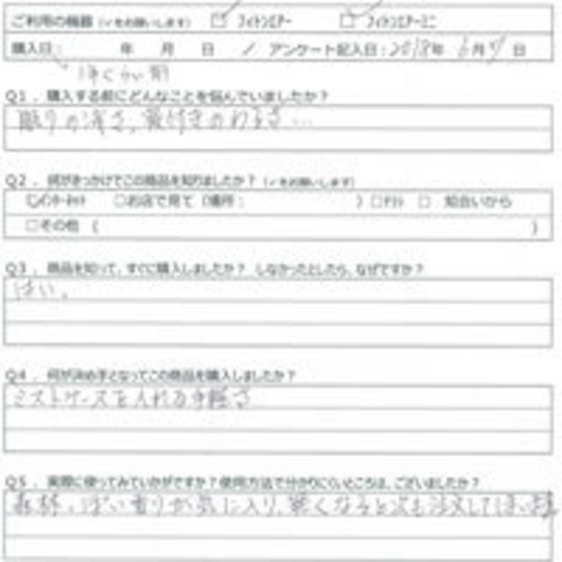 ご利用の機器（✓をお願いします） ☑ フィトンエアー ☑ フィトンエアーミニ
購入日： 年 月 日 ／ アンケート記入日：2018年 6月 日
1年くらい前
Q1．購入する前にどんなことを悩んでいましたか？
眠りの浅さ、寝付きのわるさ…
Q2．何がきっかけでこの商品を知りましたか？（✓をお願いします）
☑インターネット □お店で見て（場所： ）□チラシ □ 知合いから
□その他（ ）
Q3．商品を知って、すぐに購入しましたか？ しなかったとしたら、なぜですか？
はい。
Q4．何が決め手となってこの商品を購入しましたか？
ミストケースを入れる手軽さ
Q5．実際に使ってみていかがですか？使用方法で分かりにくいところは、ございましたか？
森林っぽい香りが気に入り、無くなると次も注文してしまいます